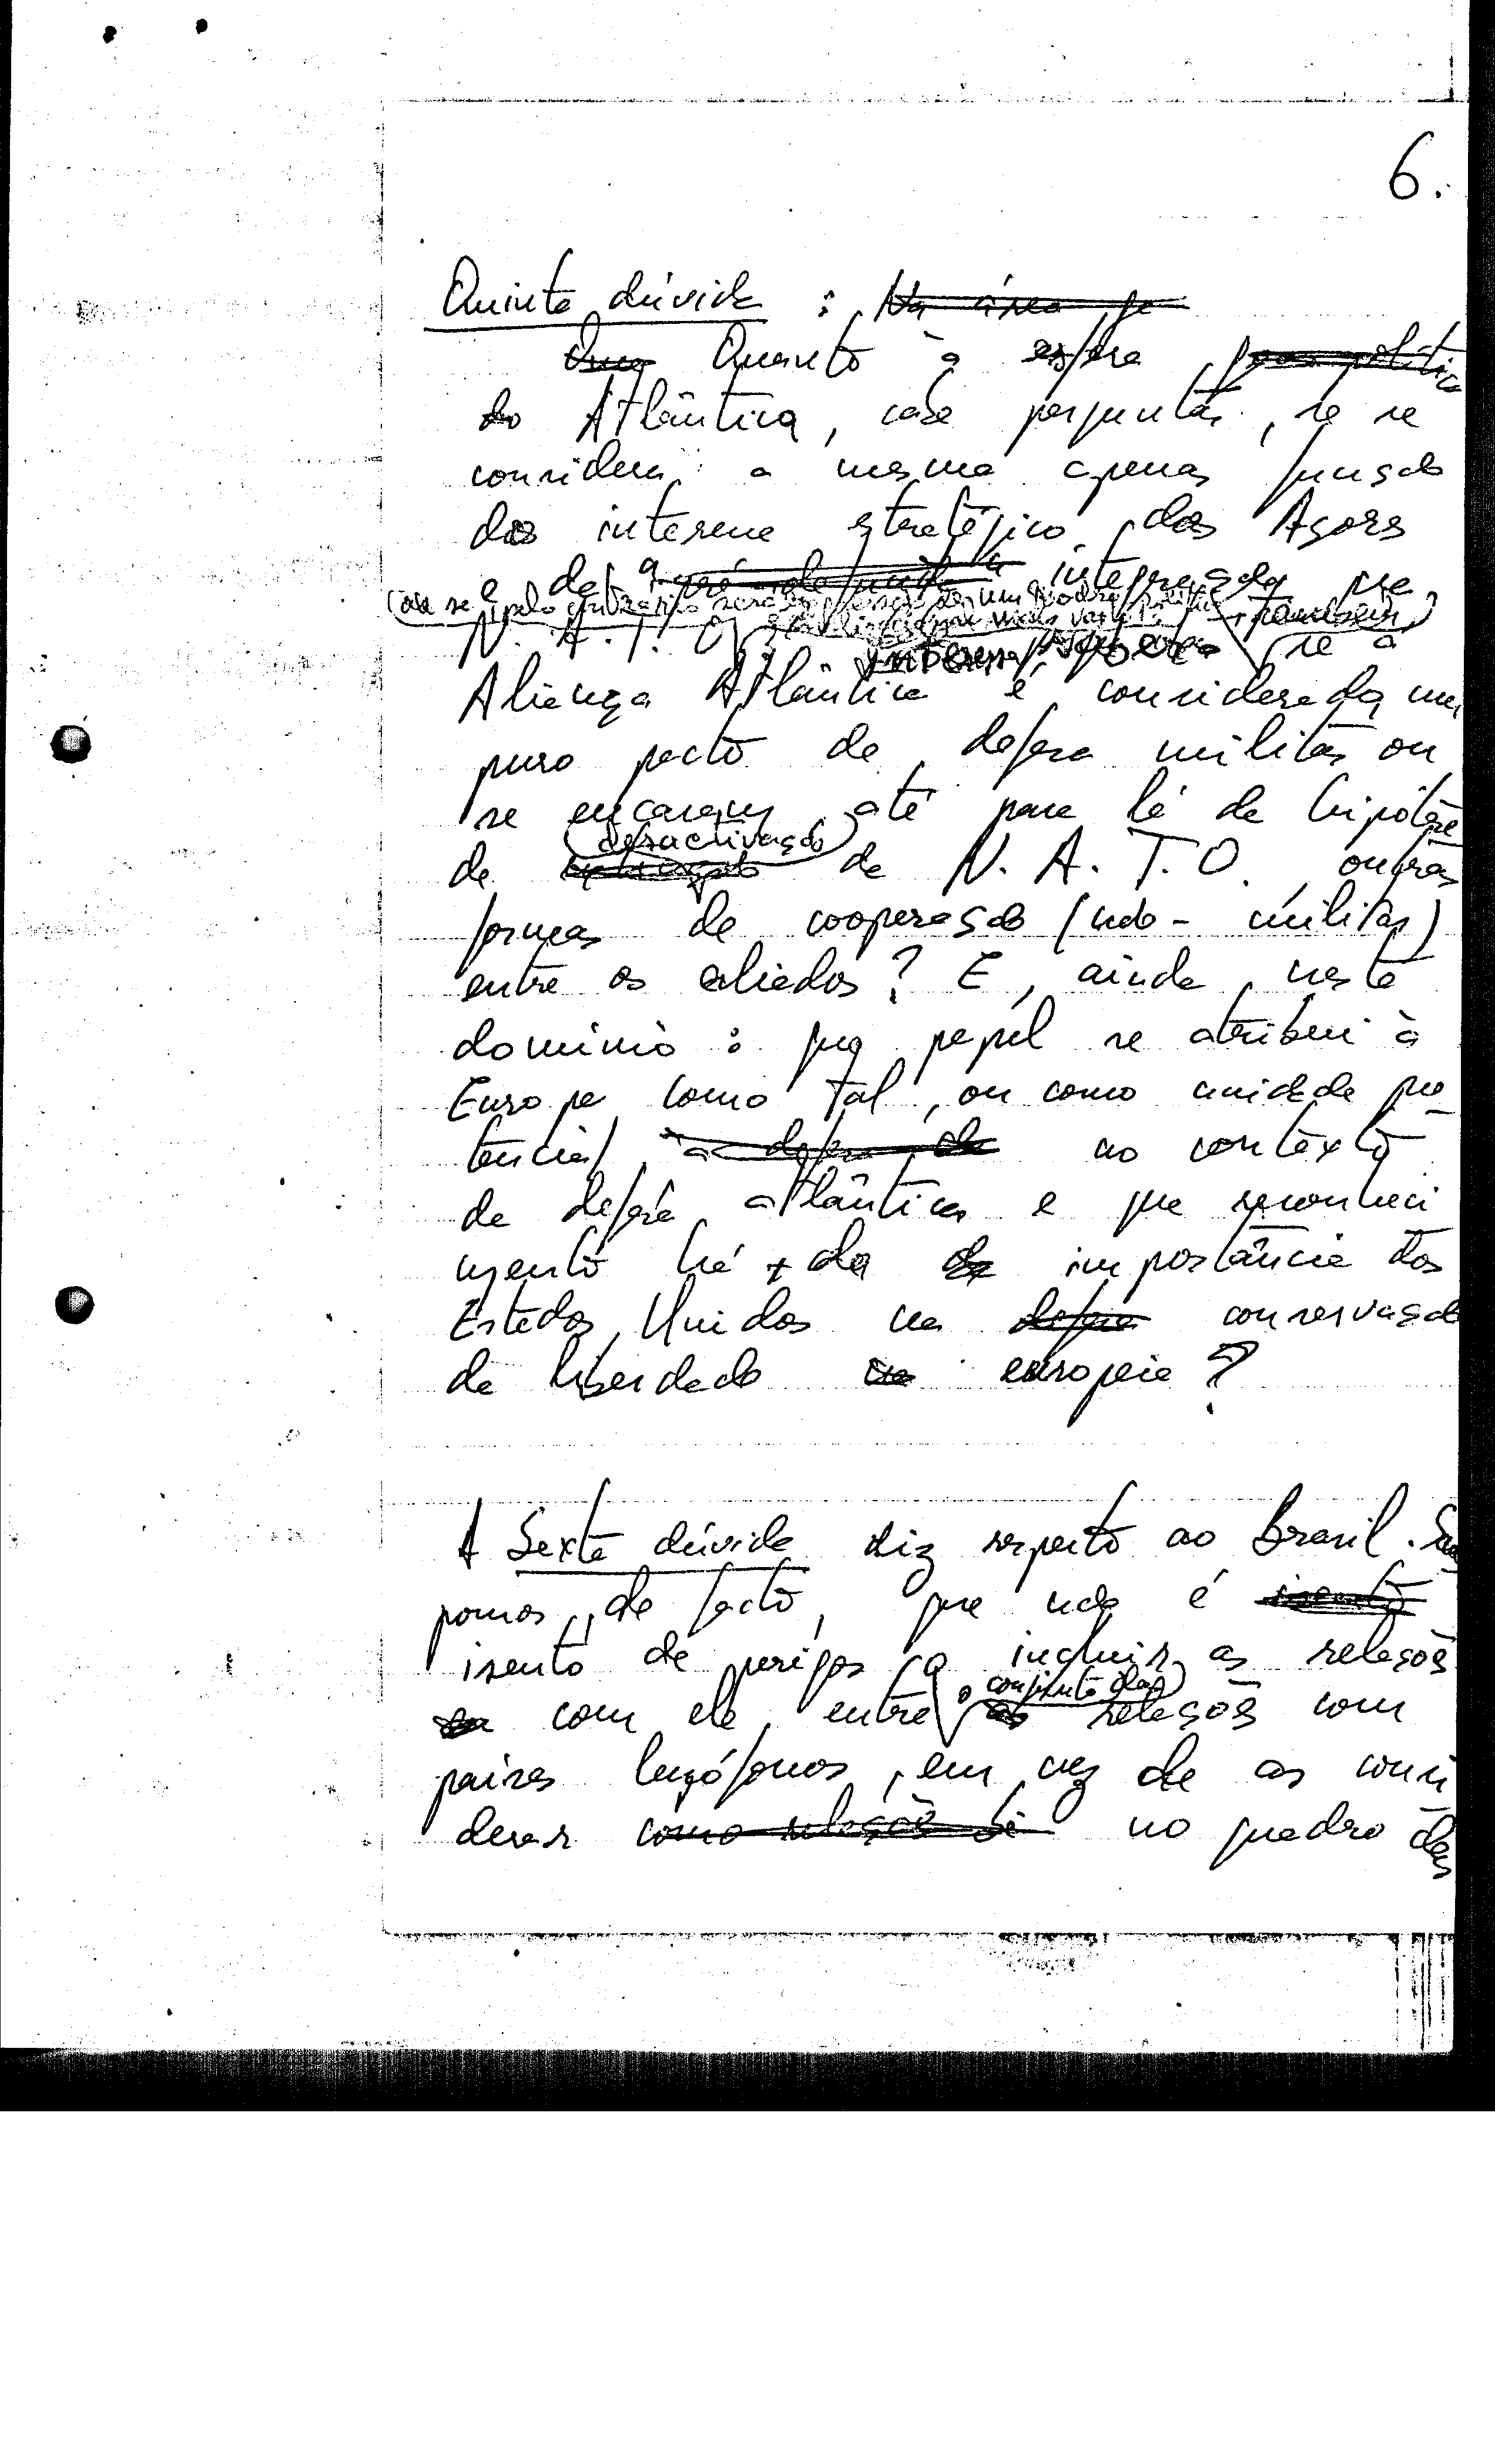 6.
Quinta dúvida : Na área que
Qua Quanto à esfera
do Atlântica, cabe perguntar, se se
considera a mesma apenas função
do interesse estratégico dos Açores
e da integração na
(ou se, pelo contrário, será expressão de um quadro
N. A. T. O. também
interessa se a
Aliança Atlântica é considerada um
puro pacto de defesa militar ou
se encaram, até para lá da hipótese
(desactivação)
da da N. A. T. O., outras
formas de cooperação (não-militar)
entre os aliados? E, ainda neste
domínio : que papel se atribui à
Europa como tal, ou como unidade po
tencial, no contexto
da defesa atlântica e que reconheci
mento há da importância dos
Estados Unidos na defesa conservação
da liberdade na europeia?
A Sexta dúvida diz respeito ao Brasil. Su
pomos, de facto, que não é isento
isento de perigos o incluir as relações
o conjunto das
com ele, entre as relações com
países lusófonos, em vez de as consi
derar como relações no quadro das